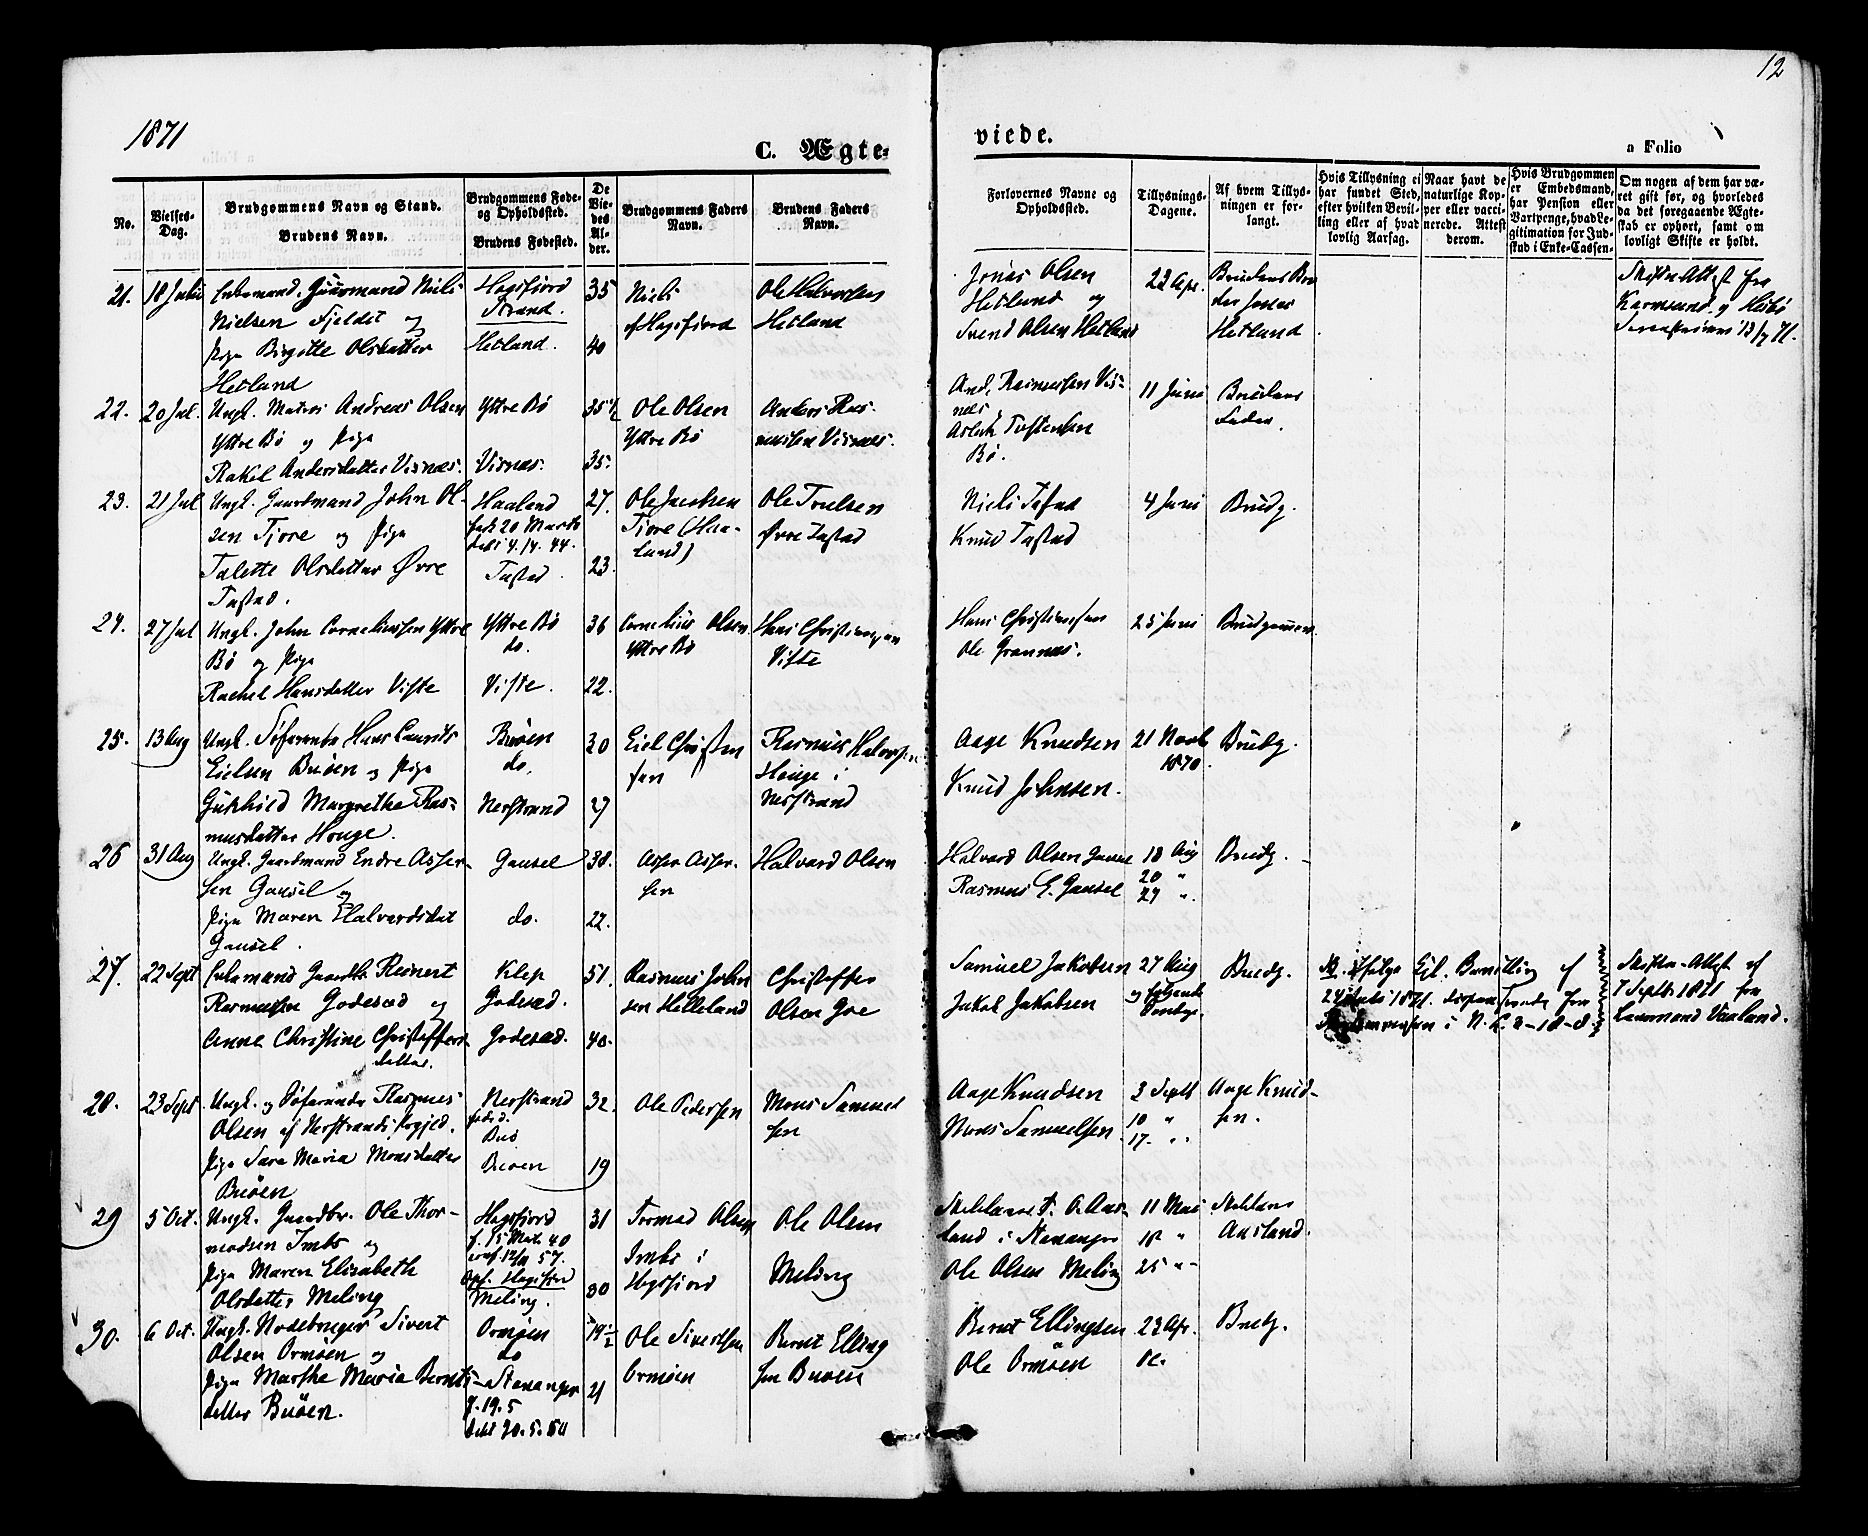 12
1871
C. Ægte-
viede.
a Folio
No.
Vielses-Dag.
Brudgommens Navn og Stand.
Brudens Navn.
Brudgommens Føde-
og Opholdssted.
Brudens Fødested.
De Viedes Alder.
Brudgommens Faders
Navn.
Brudens Faders
Navn.
Forlovernes Navne og
Opholdssted.
Tillysnings-
Dagene.
Af hvem Tillys-
ningen er for-
langt.
Hvis Tillysning ei
har fundet Sted,
efter hvilken Bevil-
ling eller af hvad
lovlig Aarsag.
Naar havt de
naturlige Kop-
per eller vacci-
nerede. Attest
derom.
Hvis Brudgommen
er Embedsmand,
har Pension eller
Vartpenge, hvad Le-
gitimation for Ind-
skud i Enke-Cassen.
Om nogen af dem har væ-
ret gift før, og hvorledes
da det foregaaende Ægte-
skab er ophørt, samt om
lovligt Skifte er holdt.
21. 18 Juli Enkemand, Gaardmand Niels
Nielsen Fjeldet og
Pige Birgitte Olsdatter
Hetland
Høgsfjord
Strand.
Hetland.
35
40
Niels
af Høgsfjord
Ole Halvorsen
Hetland
Jonas Olsen
Hetland og
Svend Olsen Hetland
22 Apr.
Brudens Bro
der Jonas
Hetland
Skifte Attest fra
Karmsund og Hesbø
22. 20 Jul. Ungk. Matros Andreas Olsen
Yttre Bø og Pige
Rakel Andersdatter Visnæs.
Yttre Bø
Visnæs.
35 1/2
35.
Ole Olsen
Yttre Bø
Anders Ras-
mussen Visnæs.
And. Rasmussen Vis-
næs,
Aslak Tostensen
Bø.
11 Juni
Brudens
Fader.
23. 21 Jul Ungk. Gaardmand John Ol-
sen Tjore og Pige
Talette Olsdatter Øvre
Tastad.
Haaland
født 20 Marts
døbt 4.14.44.
Tastad.
27.
23.
Ole Jacobsen
Tjore (Haa-
land)
Ole Truelsen
Øvre Tastad
Niels Tastad
Knud Tastad
4 Juni
Brudg.
24. 27 Jul Ungk. John Corneliussen Yttre
Bø og Pige
Rachel Hansdatter Viste
Yttre Bø
do.
Viste.
36
22.
Cornelius Olsen
Yttre Bø
Hans Christiansen
Viste
Hans Christiansen
Ole Grannæs.
25 Juni
Brudgommen
25. 13 Aug Ungk. Søfarende Hans Laurits
Eielsen Buøen og Pige
Gunhild Margrethe Ras-
musdatter Houge.
Buøen
do.
Nerstrand
30
27
Eiel Christen
sen
Rasmus Halvorsen
Houge i
Nerstrand
Aage Knudsen
Knud Johnsen.
21 Novb
1870.
Brudg.
26 31 Aug Ungk. Gaardmand Endre Asser-
sen Gausel og
Pige Maren Halvardsdat
Gausel.
Gausel
do.
38.
22.
Asser Asser-
sen
Halvard Olsen
Halvard Olsen Gausel
Rasmus E. Gausel
18 Aug
20 "
27 ".
Brudg.
27. 22 Sept Enkemand Gaardbr. Reinert
Rasmussen Godesæd og
Anne Christine Christoffers-
datter.
Klep
Godesæd.
Godesæd.
51.
40.
Rasmus John
sen Helleland
Christoffer
Olsen Goe
Samuel Jakobsen
Jakob Jakobsen
27 Aug
og følgende
Søndge.
Brudg.
24 Juli 1871.
i N. L. 3-18-8.
Skifte-Attest af
7 Septb. 1871 fra
Lensmand Vaaland.
28. 23 Sept. Ungk. og Søfarende Rasmus
Olsen af Nerstrands Prgjeld.
Pige Sara Maria Monsdatter
Buøen
Nerstrand
Buø
Buøen
32.
19
Ole Pedersen
Mons Samuel
sen
Aage Knudsen
Mons Samuelsen
3 Septb
10 "
17. ".
Aage Knud-
sen.
29 5 Oct. Ungk. Gaardbr. Ole Thor-
modsen Imbs og
Pige Maren Elisabeth
Olsdatter Meling
Høgsfjord
f. 15 Mai 40
conf. 12/11 57.
Oph. Høgsfjord
Meling.
31
30
Tormod Olsen
Imbs i
Høgsfjord
Ole Olsen
Meling
land i Stavanger
Ole Olsen Meling
11 Mai
18 "
25 "-
Aasland.
30. 6 Oct. Ungk. Nodebruger Sivert
Olsen Ormøen og
Pige Marthe Maria Bernts-
datter Buøen.
Ormøen
do
Stavanger
f. 19.5
døbt 20.5.50
19 1/2
21
Ole Sivertsen
Ormøen
Bernt Elling
sen Buøen
Bernt Ellingsen
Ole Ormøen
23 Apr.
Brudg.